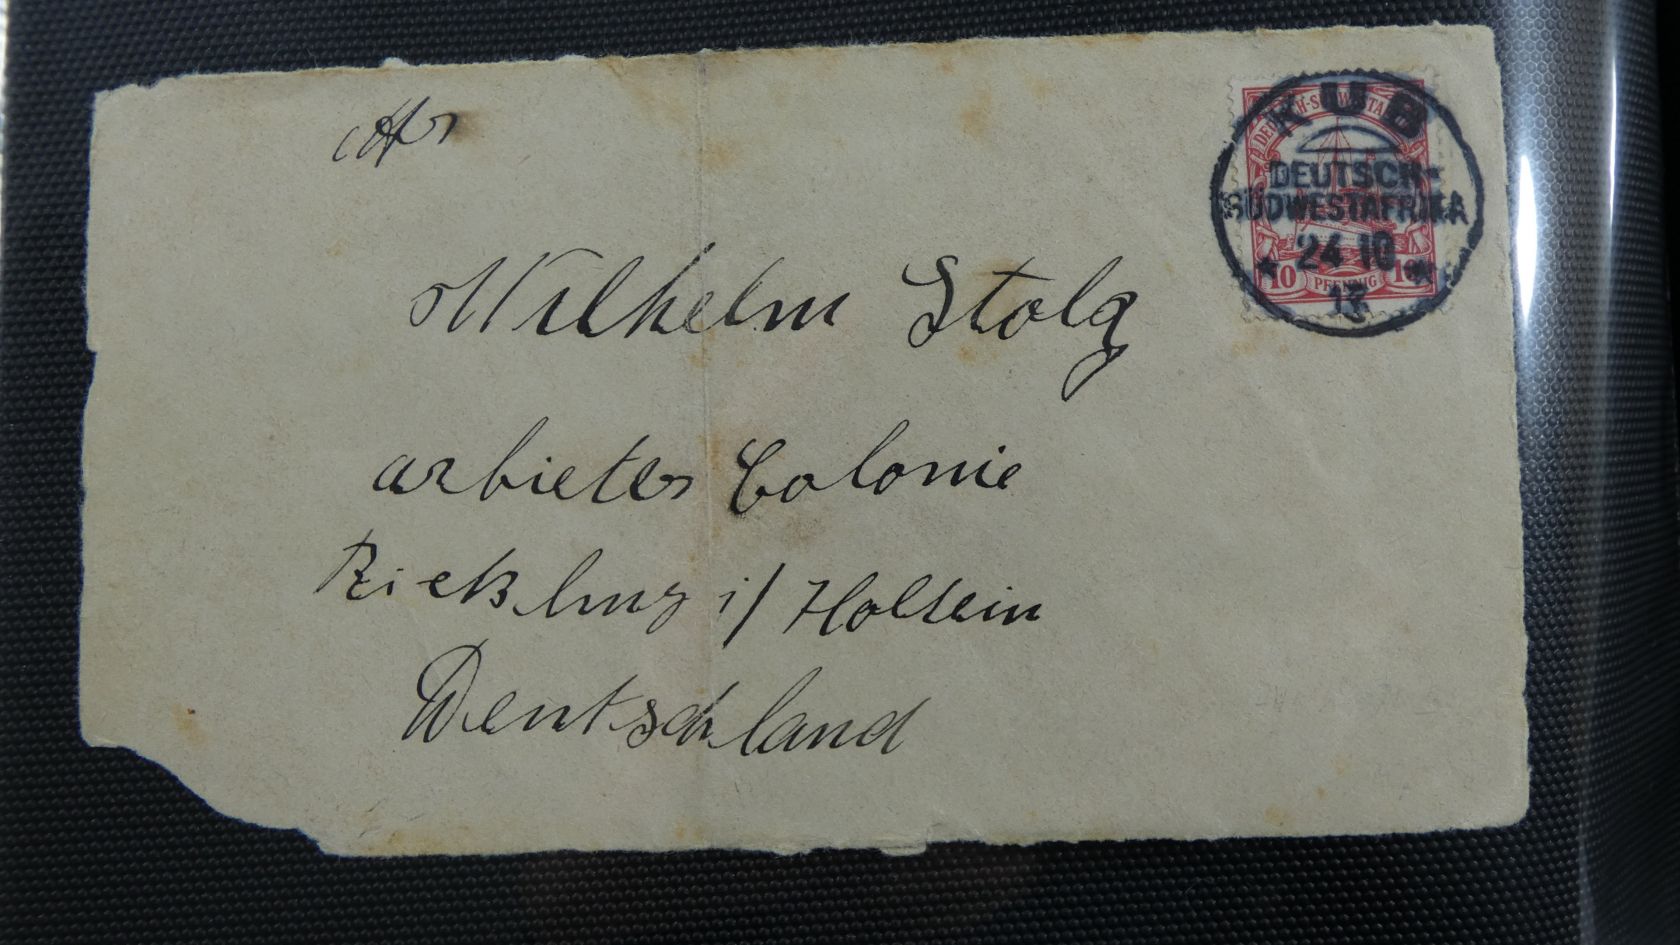 KUB
DEUTSCH-
SÜDWESTAFRIKA
24 10
13
10 PFENNIG 10
An
Wilhelm Stolg
arbieter Colonie
i/ Holstein
Deutschland